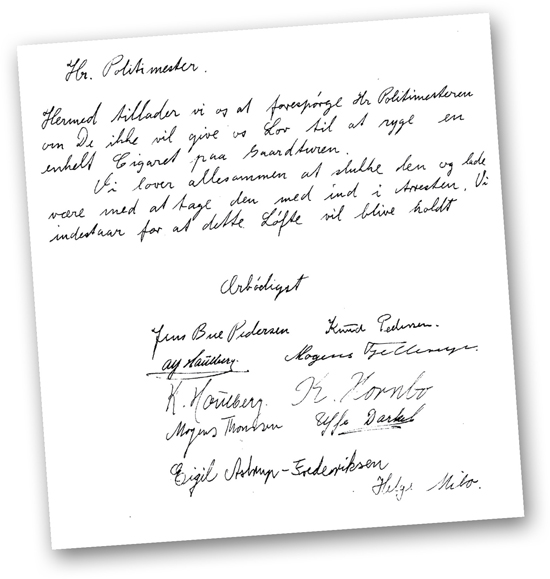 Hr. Politimester.
Hermed tillader vi os at forespørge Hr Politimesteren
om De ikke vil give os Lov til at ryge en
enkelt Cigaret paa Gaardturen.
Vi lover allesammen at slukke den og lade
være med at tage den med ind i Arresten. Vi
indestaar for at dette Løfte vil blive holdt
Ærbødigst
Jens Bue Pedersen Knud Pedersen.
Alf Houlberg. Mogens Fjellerup.
K. Houlberg. K. Hornbo
Mogens Thomsen Uffe Darket
Eigil Astrup-Frederiksen
Helge Milo.